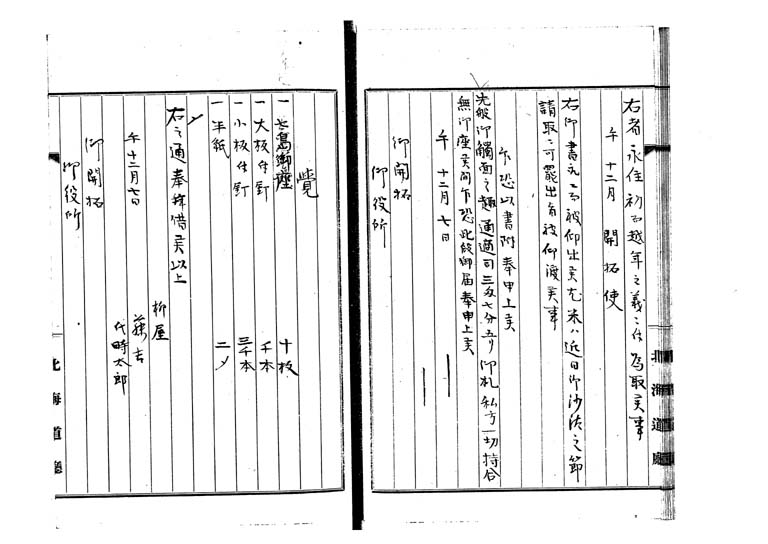 右者永住初而越年之義ニ付為取候事
午十二月 開拓使
右御書元而被仰出候尤米ハ近日御沙汰之節
請取ニ可罷出旨被仰渡候事
乍恐以書附奉申上候
先般御觸面之趣通通司三匁七分五り御札私方一切持合
無御座候間乍恐此段御届奉申上候
午 十二月 七日
御開拓
御役所
北海道廳
覺
一 御座 十枚
一 大板付釘 千本
一 小板付釘 三千本
一 半紙 二〆
〆
右之通奉拝借候以上
午 十二月七日
柳屋
藤吉
代時太郎
御開拓
御役所
北海道廳